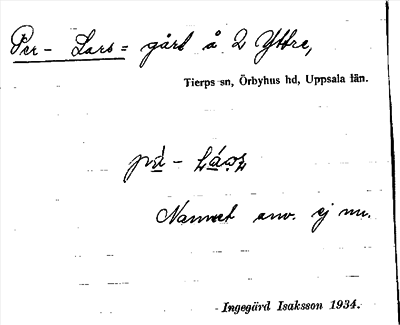 Per- Lars= gård å 2 Yttre,
Tierps sn, Örbyhus hd, Uppsala län.
Namnet anv. ej nu.
Ingegärd Isaksson 1934.